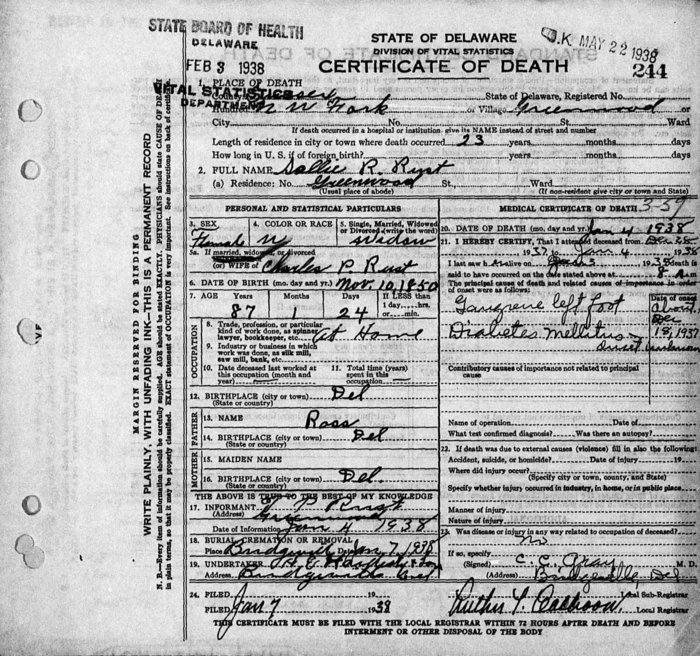 STATE BOARD OF HEALTH
DELAWARE
FEB 3 1938
VITAL STATISTICS
DEPARTMENT
STATE OF DELAWARE
DIVISION OF VITAL STATISTICS
CERTIFICATE OF DEATH
O.K MAY 22 1938
244
1. PLACE OF DEATH
County Sussex State of Delaware, Registered No.
Hundred N W Fork or Village Greenwood
City No. St. Ward
If death occurred in a hospital or institution, give its NAME instead of street and number
Length of residence in city or town where death occurred 23 years months days
How long in U. S. if of foreign birth? years months days
2. FULL NAME Sallie R. Rust
(a) Residence: No. Greenwood St., Ward
(Usual place of abode) (If non-resident give city or town and State)
MARGIN RESERVED FOR BINDING
WRITE PLAINLY, WITH UNFADING INK—THIS IS A PERMANENT RECORD
N. B.—Every item of information should be carefully supplied. AGE should be stated EXACTLY. PHYSICIANS should state CAUSE OF DEATH
in plain terms, so that it may be properly classified. EXACT statement of OCCUPATION is very important. See instructions on back of certificate.
PERSONAL AND STATISTICAL PARTICULARS
3. SEX 4. COLOR OR RACE 5. Single, Married, Widowed or Divorced (write the word)
Female W Widow
5a. If married, widowed, or divorced
(or) WIFE of Charles P. Rust
6. DATE OF BIRTH (mo. day and yr.) Nov. 10, 1850
7. AGE Years Months Days If LESS than
87 1 24 hrs. or min.
OCCUPATION
8. Trade, profession, or particular kind of work done, as spinner, lawyer, bookkeeper, etc. At Home
9. Industry or business in which work was done, as silk mill, saw mill, bank, etc.
10. Date deceased last worked at this occupation (month and year)
11. Total time (years) spent in this occupation
12. BIRTHPLACE (city or town) Del
(State or country)
FATHER
13. NAME Ross
14. BIRTHPLACE (city or town) Del
(State or country)
MOTHER
15. MAIDEN NAME
16. BIRTHPLACE (city or town) Del.
(State or country)
THE ABOVE IS TRUE TO THE BEST OF MY KNOWLEDGE
17. INFORMANT Rust
(Address) Greenwood
Date of Information Jan 4 1938
18. BURIAL CREMATION OR REMOVAL
Place Bridgeville Date Jan 7, 1938
19. UNDERTAKER
Address Bridgeville
MEDICAL CERTIFICATE OF DEATH 3-59
20. DATE OF DEATH (mo. day and yr.) Jan 4 1938
21. I HEREBY CERTIFY, That I attended deceased from Dec 25
1937 Jan 4 1938
I last saw h alive on Jan 3, 1938 death is
said to have occurred on the date stated above at 8 A m.
The principal cause of death and related causes of importance in order
of onset were as follows: Date of onset
Gangrene left foot about Dec 18, 1937
Diabetes Mellitus onset unknown
Contributory causes of importance not related to principal
cause
Name of operation Date of
What test confirmed diagnosis? Was there an autopsy?
22. If death was due to external causes (violence) fill in also the following:
Accident, suicide, or homicide? Date of injury 19
Where did injury occur?
(Specify city or town, county, and State)
Specify whether injury occurred in industry, in home, or in public place.
Manner of injury
Nature of injury
23. Was disease or injury in any way related to occupation of deceased?
No
If so, specify
(Signed) C. E. Gray M. D.
(Address) Bridgeville, Del
24. FILED 19 Local Sub-Registrar
FILED Jan 7 1938 Local Registrar
THIS CERTIFICATE MUST BE FILED WITH THE LOCAL REGISTRAR WITHIN 72 HOURS AFTER DEATH AND BEFORE
INTERMENT OR OTHER DISPOSAL OF THE BODY